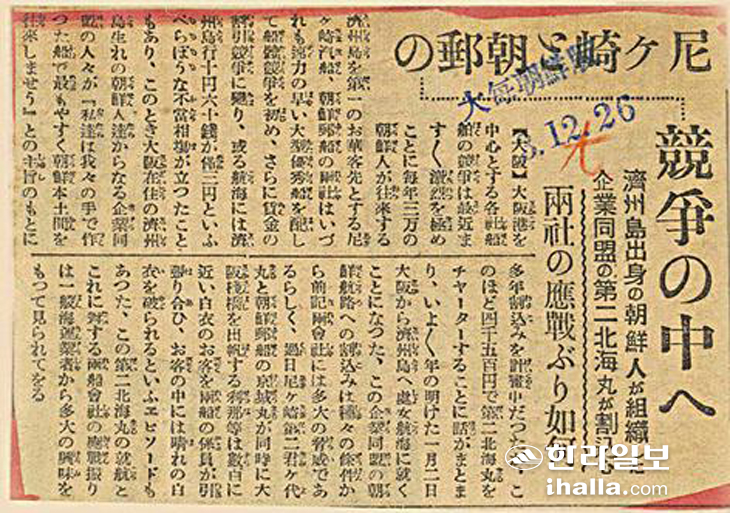 尼ケ崎と朝郵の
競爭の中へ
濟州島出身の朝鮮人が組織した
企業同盟の第二北海丸が割込み
兩社の應戰ぶり如何
大每朝鮮版
12.26
【大阪】大阪港を
中心とする各社船
舶の競爭は最近ま
す〱激烈を極め
ことに每年三万の
朝鮮人が往來する
濟州島を第一のお華客先とする尼
ケ崎汽船、朝鮮郵船の兩社はいづ
れも速力の早い大型優秀船を配し
て船體競爭を初め、さらに賃金の
割引競爭に變り、或る航海には濟
州島行十円六十錢が僅三円といふ
べらぼうな不當相場が立つたこと
もあり、このとき大阪在住の濟州
島生れの朝鮮人達からなる企業同
盟の人々が『私達は我々の手で作
つた船で最もやすく朝鮮本土間を
往來しませう』との主旨のもとに
多年割込みを計畫中だつたが、こ
のほど四千五百円で第二北海丸を
チヤーターすることに話がまとま
り、いよ〱年の明けた一月二日
大阪から濟州島へ處女航海に就く
ことになつた、この企業同盟の朝
鮮航路への割込みは種々の條件か
ら前記兩會社には多大の脅威であ
るらしく、過日尼ケ崎第二君ケ代
丸と朝鮮郵船の京城丸が同時に大
阪棧橋を出帆する刹那等は數百に
近い白衣のお客を兩船の係員が引
張り合ひ、お客の中には晴れの白
衣を破られるといふエピソードも
あつた、この第二北海丸の就航と
これに對する兩船會社の應戰振り
は一般海運業者から多大の興味を
もつて見られてをる
한라일보
ihalla.com